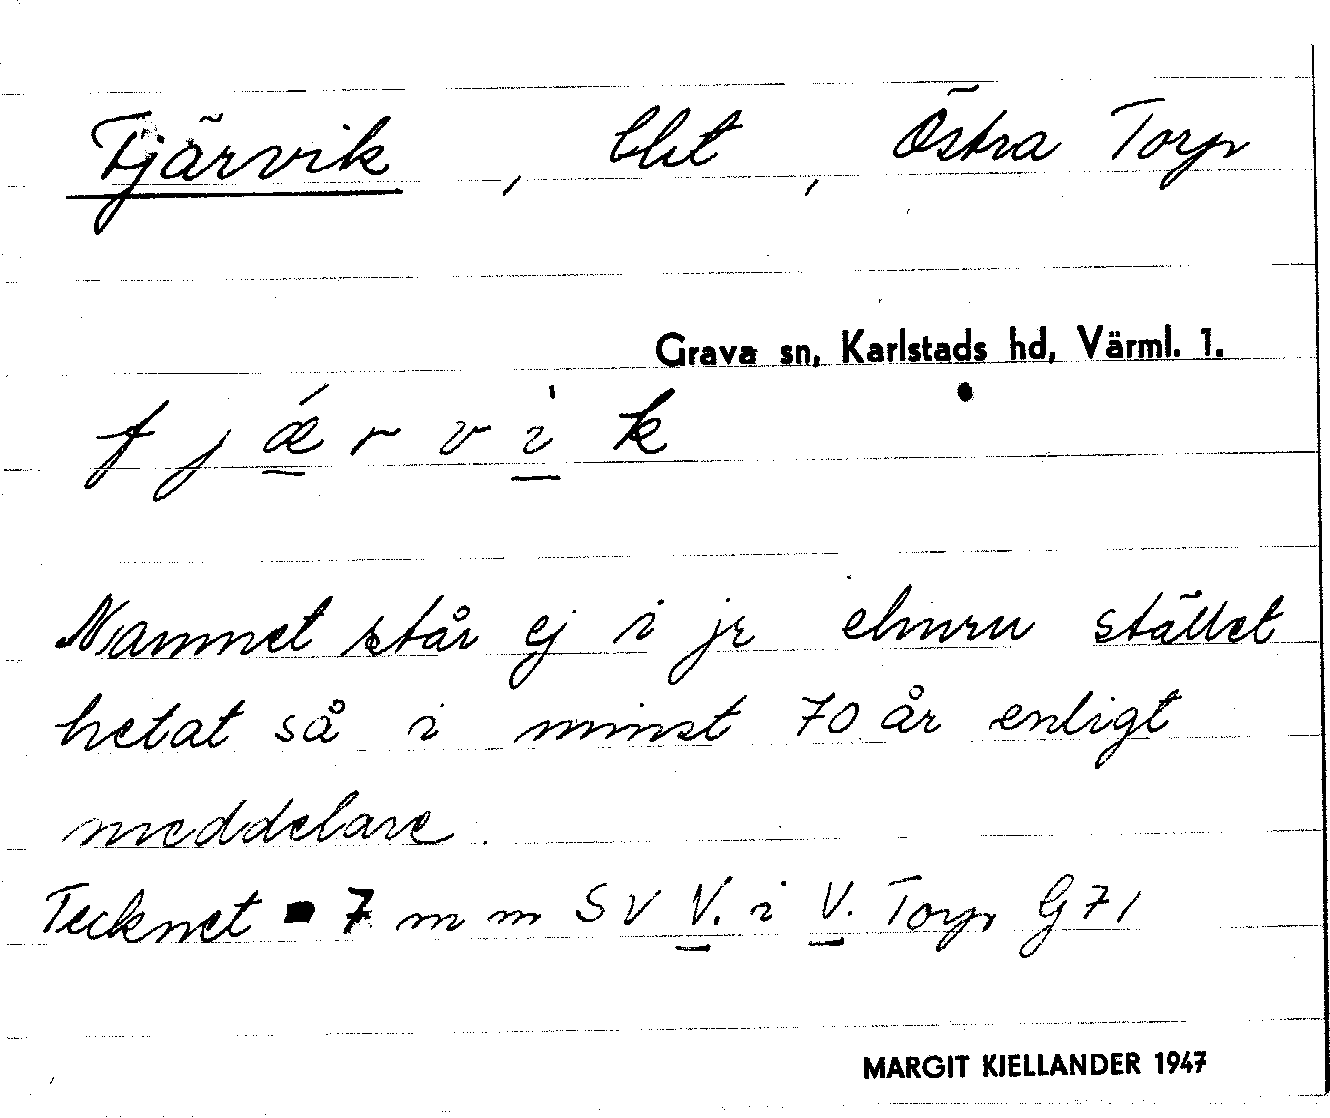 Fjärvik, bbt, Östra Torp
Grava sn, Karlstads hd, Värml. 1.
f j ǽ r v i k
Namnet står ej i jr ehuru stället
hetat så i minst 70 år enligt
meddelare.
Tecknet ▪ 7 mm SV V. i V. Torp G71
MARGIT KJELLANDER 1947